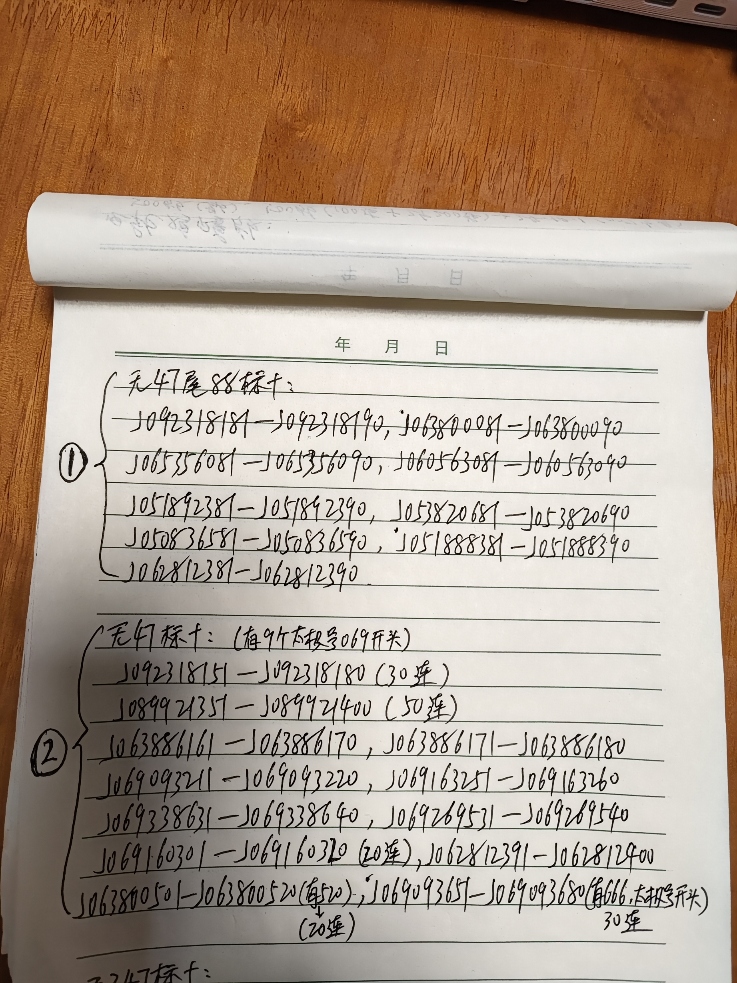 年 月 日
① 无47尾88标十:
J092318181—J092318190, J063800081—J063800090
J065356081—J065356090, J060563081—J060563090
J051892381—J051892390, J053820681—J053820690
J050836581—J050836590, J051888381—J051888390
J062812381—J062812390
② 无47标十: (有9个太极号069开头)
J092318151—J092318180 (30连)
J089921351—J089921400 (50连)
J063886161—J063886170, J063886171—J063886180
J069093211—J069093220, J069163251—J069163260
J069338631—J069338640, J069269531—J069269540
J069160301—J069160320 (20连), J062812391—J062812400
J063800501—J063800520(有520), J069093651—J069093680(有666,太极号开头)
(20连) 30连
无347标十: